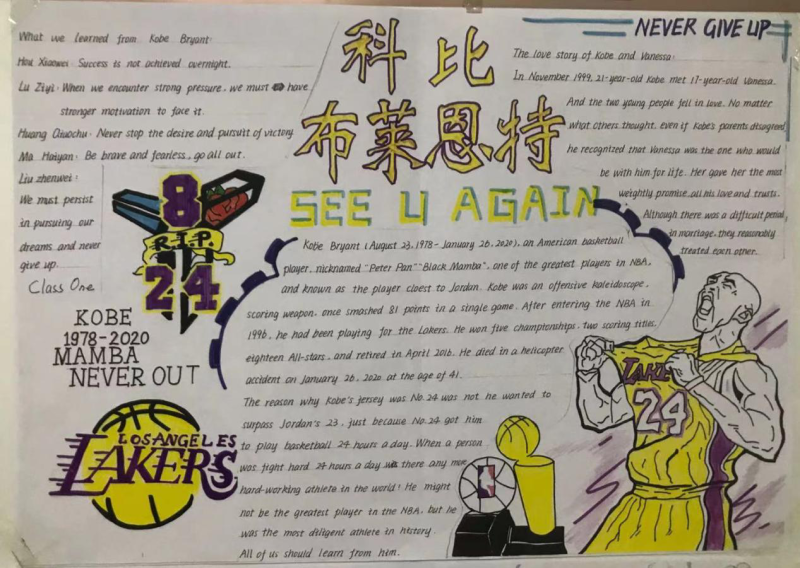 What we learned from Kobe Bryant:
Hou Xiaowei: Success is not achieved overnight.
Lu Ziyi: When we encounter strong pressure, we must have
stronger motivation to face it.
Huang Qiuochu: Never stop the desire and pursuit of victory.
Ma Haiyan: Be brave and fearless, go all out.
Liu zhenwei:
We must persist
in pursuing our
dreams and never
give up.
Class One
8
R.I.P.
24
KOBE
1978-2020
MAMBA
NEVER OUT
LOS ANGELES
LAKERS
科比
布莱恩特
SEE U AGAIN
NEVER GIVE UP
The love story of Kobe and Vanessa:
In November 1999, 21-year-old Kobe met 17-year-old Vanessa.
And the two young people fell in love. No matter
what others thought, even if Kobe's parents disagreed,
he recognized that Vanessa was the one who would
be with him for life. Her gave her the most
weightly promise, all his love and trusts.
Although there was a difficult period
in marriage, they reasonably
treated each other.
Kobe Bryant (August 23, 1978-January 26, 2020), an American basketball
player, nicknamed "Peter Pan" "Black Mamba", one of the greatest players in NBA,
and known as the player closest to Jordan. Kobe was an offensive kaleidoscope,
scoring weapon, once smashed 81 points in a single game. After entering the NBA in
1996, he had been playing for the Lakers. He won five championships, two scoring titles,
eighteen All-stars, and retired in April 2016. He died in a helicopter
accident on January 26, 2020 at the age of 41.
The reason why Kobe's jersey was No.24 was not he wanted to
surpass Jordan's 23, just because No.24 got him
to play basketball 24 hours a day. When a person
was fight hard 24 hours a day, was there any more
hard-working athlete in the world! He might
not be the greatest player in the NBA, but he
was the most diligent athlete in history.
All of us should learn from him.
LAKE
24